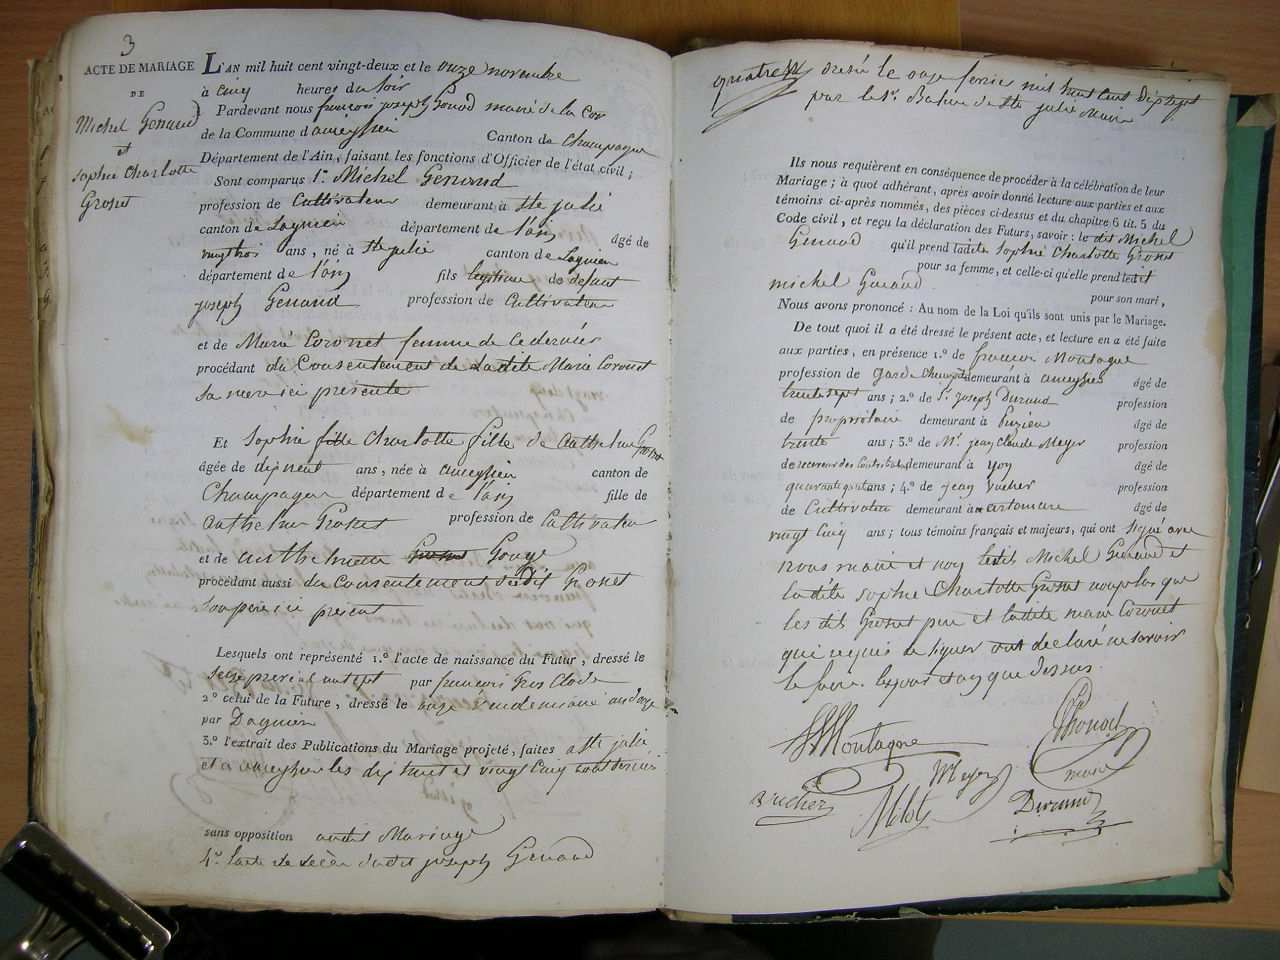 3
ACTE DE MARIAGE
DE
Michel Genaud
et
Sophie Charlotte
Groset
L'AN mil huit cent vingt-deux et le onze novembre
à cinq heures du soir
Pardevant nous françois joseph maire de la
de la Commune d'ameyzieu Canton de Champagne
Département de l'Ain, faisant les fonctions d'Officier de l'état civil;
Sont comparus 1.º Michel Genaud
profession de Cultivateur demeurant à Ste julie
canton de Lagnieu département de l'ain âgé de
vingt trois ans, né à Ste julie canton de Lagnieu
département de l'ain fils legitime de défunt
joseph Genaud profession de Cultivateur
et de Marie Coronet femme de ce dernier
procédant du Consentement de Ladite Marie Coronet
sa mere ici presente
Et Sophie fille Charlotte fille de Anthelme Groset
âgée de dix neuf ans, née à ameyzieu canton de
Champagne département de l'ain fille de
Anthelme Groset profession de Cultivateur
et de anthelmette Groset Gonge
procédant aussi du Consentement dudit Groset
son père ici present
Lesquels ont représenté 1.º l'acte de naissance du Futur, dressé le
seize prerial an sept par françois Gros Claude
2.º celui de la Future, dressé le onze vendemiaire an douze
par Dagnien
3.º l'extrait des Publications du Mariage projeté, faites a Ste julie
et a ameyzieu les dix huit et vingt cinq aout dernier
sans opposition audit Mariage
4.º l'acte de décès dudit joseph Genaud
quatre dressé le onze fevrier mil huit cent dix sept
par le Sr. de Ste julie Maire
Ils nous requièrent en conséquence de procéder à la célébration de leur
Mariage; à quoi adhérant, après avoir donné lecture aux parties et aux
témoins ci-après nommés, des pièces ci-dessus et du chapitre 6 tit. 5 du
Code civil, et reçu la déclaration des Futurs, savoir: le dit Michel
Genaud qu'il prend ladite Sophie Charlotte Groset
pour sa femme, et celle-ci qu'elle prend ledit
michel Genaud pour son mari,
Nous avons prononcé: Au nom de la Loi qu'ils sont unis par le Mariage.
De tout quoi il a été dressé le présent acte, et lecture en a été faite
aux parties, en présence 1.º de françois Montagne
profession de Garde Champetre demeurant à ameyzieu âgé de
trente sept ans; 2.º de Sr. joseph Durand profession
de proprietaire demeurant à âgé de
trente ans; 3.º de Mr. jean Claude Meyer profession
de receveur des Contributions demeurant à yon âgé de
quarante quatre ans; 4.º de jean Vucher profession
de Cultivateur demeurant à artemare âgé de
vingt Cinq ans; tous témoins français et majeurs, qui ont signé avec
nous maire et non lesdits Michel Genaud et
ladite sophie Charlotte Groset non plus que
les dits Groset pere et ladite marie Coronet
qui requis de signer ont declaré ne savoir
le faire. les jour et an que dessus.
Montagne
maire
Vucher Meyer
Durand